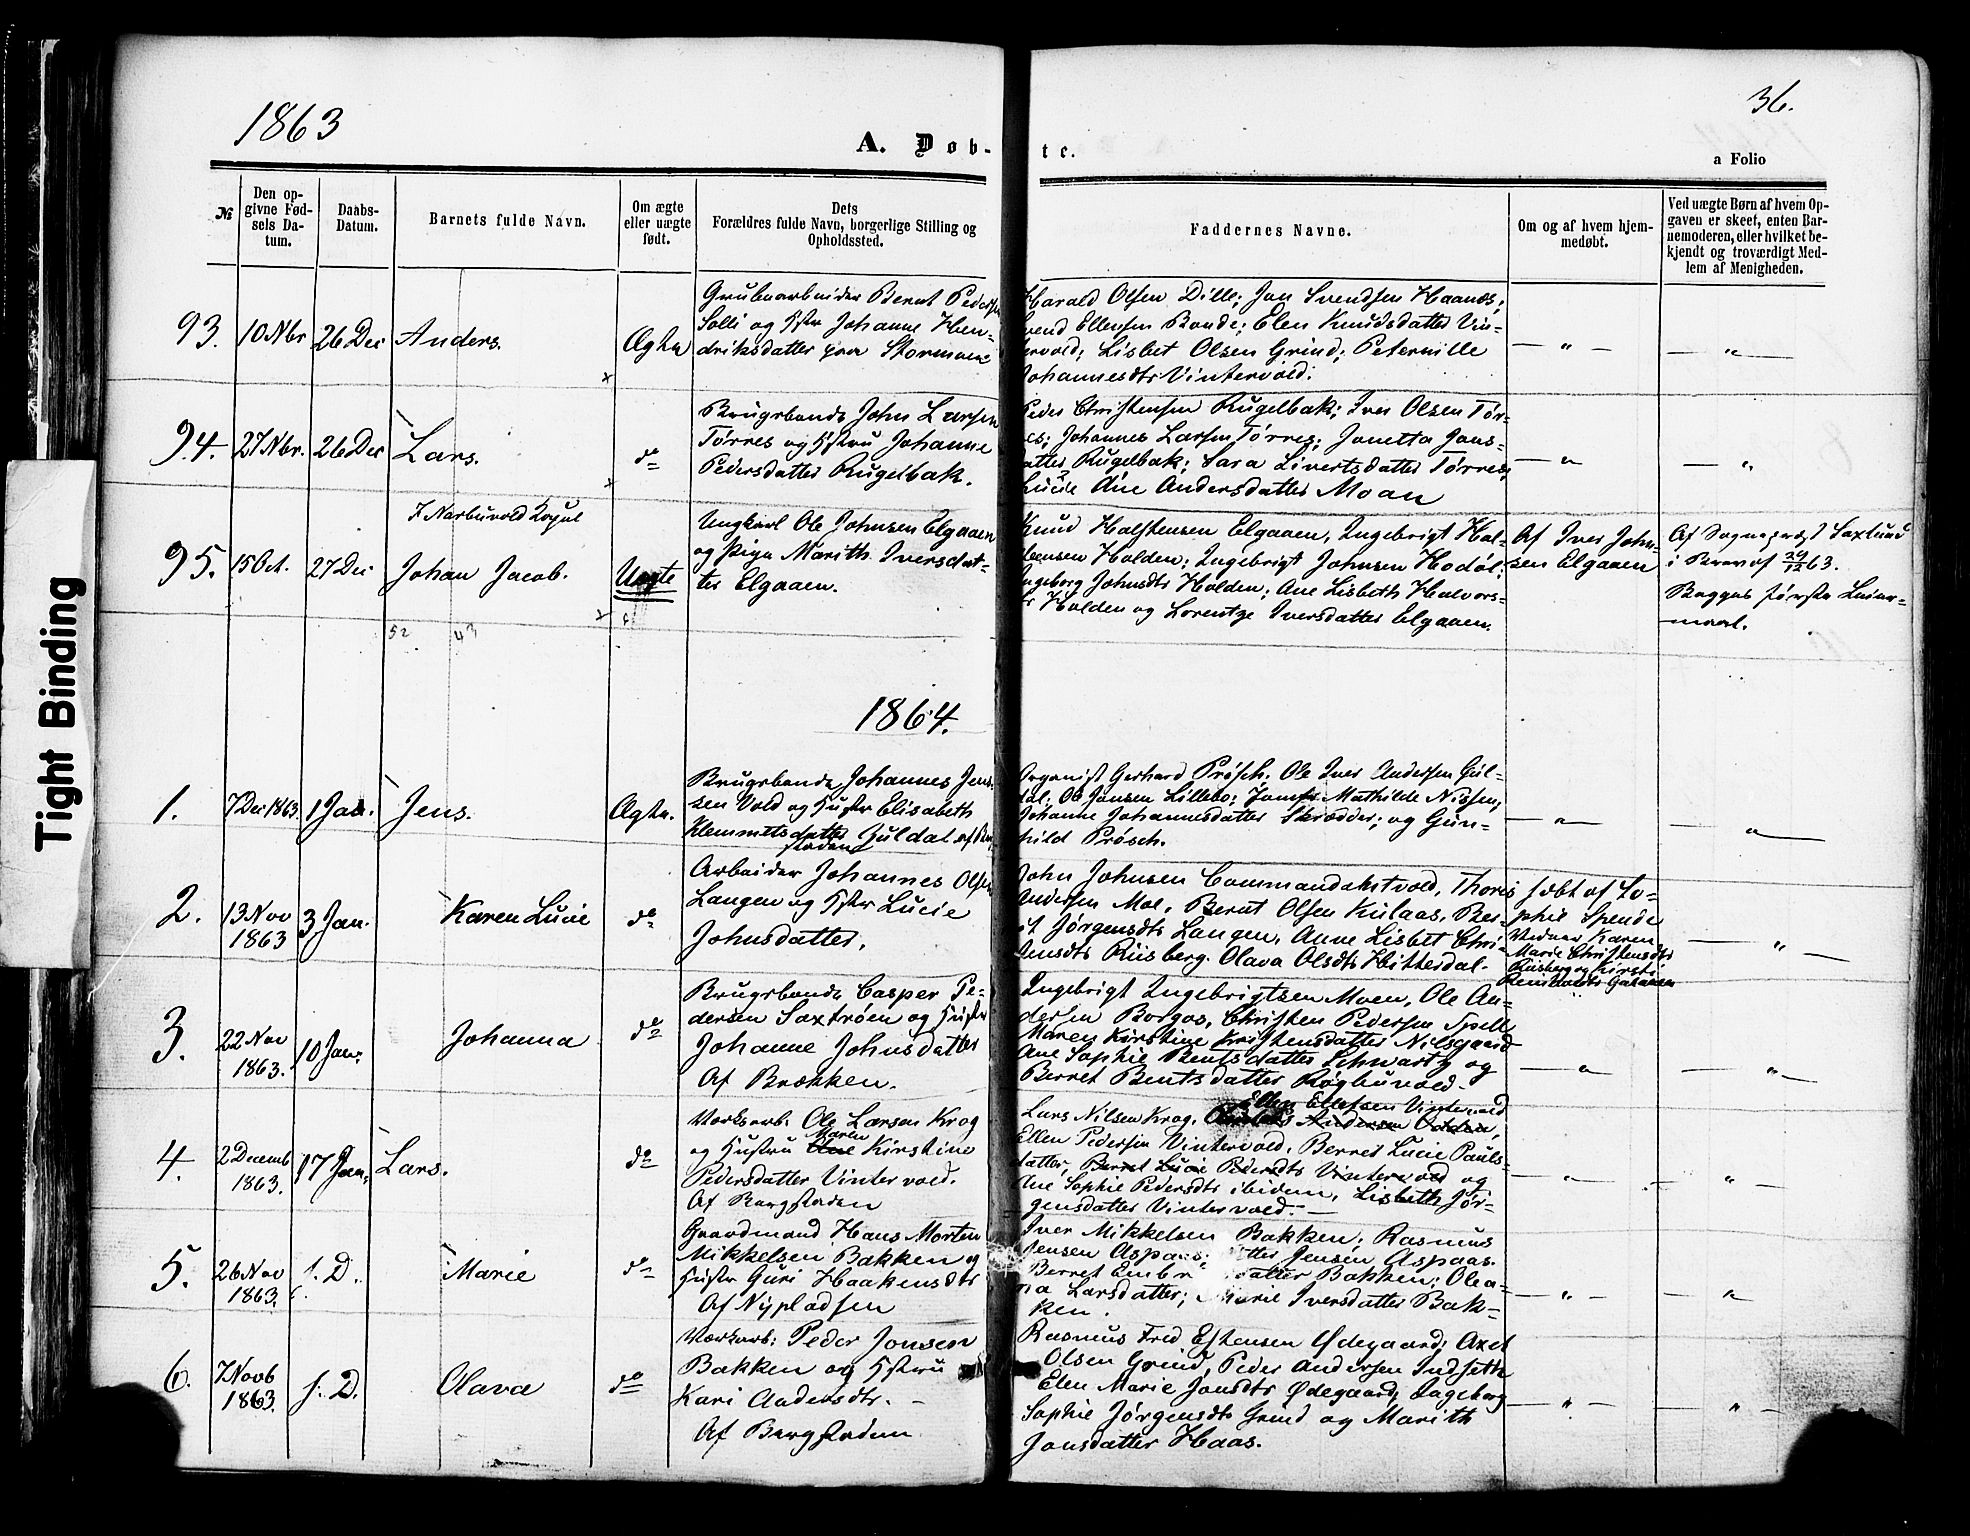 1863
36.
A. Døb-
te.
a Folio
№
Den op-
givne Fød-
sels Da-
tum.
Daabs-
Datum.
Barnets fulde Navn.
Om ægte
eller uægte
født.
Dets
Forældres fulde Navn, borgerlige Stilling og
Opholdssted.
Faddernes Navne.
Om og af hvem hjem-
medøbt.
Ved uægte Børn af hvem Op-
gaven er skeet, enten Bar-
nemoderen, eller hvilket be-
kjendt og troværdigt Med-
lem af Menigheden.
93.
10 Nbr
26 Dec
Anders.
Ægte
Grubearbeider Bernt Peders
Solli og Hstr Johanne Hen-
driksdatter
Harald Olsen Dille; Jon Svendsen Haanæs;
Svend Ellensen Bonde; Elen Knudsdatter Vin-
tervold; Lisbet Olsen Grind; Peternille
Johannesdtr Vintervold.
— " —
— " —
94.
27 Nbr.
26 Dec
Lars.
do
Brugsbonde John Larsen
Tørres og Hstru Johanne
Pedersdatter Rugelbak.
Peder Christensen Rugelbak; Iver Olsen Tør-
res; Johannes Larsen Tørres; Jonetta Jons-
datter Rugelbak; Sara Sivertsdatter Tørres;
Lucie Ane Andersdatter Moan
— " —
— " —
I Narbuvold Kapel
95.
15 Oct.
27 Dec
Johan Jacob.
Uægte
Ungkarl Ole Johnsen Elgaaen
og Pige Marith Iversdat-
ter Elgaaen.
Knud Halstensen Elgaaen, Ingebrigt Hal-
stensen Holden; Ingebrigt Johnsen Hodøl;
Ingeborg Johnsdtr Holden; Ane Lisbeth Halvors-
dtr Holden og Lorentze Iversdatter Elgaaen.
Af Iver John-
sen Elgaaen
Af Sognepræst Saxlund
i Brev af 29/12 63.
Begges første Leier-
maal.
52
43
1864.
1.
7 Dec 1863.
1 Jan.
Jens.
Ægte.
Brugsbonde Johannes Jens-
sen Vold og Hustr Elisabeth
Klemmetsdatter Guldal af Berg
staden
Organist Gerhard Prøsch; Ole Iver Andersen Gul-
dal; Ole Jonsen Lillebo; Jomfr Mathilde Nissen;
Johanne Johannesdatter Skrædder; og Gun-
hild Prøsch.
— " —
— " —
2.
13 Nov
1863
3 Jan.
Karen Lucie
do
Arbeider Johannes Olsen
Langen og Hstr Lucie
Johnsdatter.
John Johnsen Commandantvold, Thoris
Andersen Moe, Bernt Olsen Kulaas, Ber-
it Jørgensdtr Langen, Anne Lisbet Chri-
stensdtr Riisberg. Olava Olsdtr Hitterdal.
døbt af So-
phie Spende
Vidner Karen
Marie Christensdtr
Riisberg og Kirsti
— " —
3.
22 Nov
1863.
10 Jan.
Johanna
do
Brugsbonde Casper Pe-
dersen Saxtrøen og Hustr
Johanne Johnsdatter
Af Brækken.
Ingebrigt Ingebrigtsen Moen, Ole An-
dersen Borgos, Christen Pedersen Spell
Maren Kirstine Kristensdatter Nilsgaard
Ane Sophie Bentsdatter Schwartz og
Berret Bentsdatter Røgbuvold.
— " —
— " —
4.
2 Decemb
1863.
17 Jan.
Lars.
do
Værksarb: Ole Larsen Krog
og Hustru Maren Kirstine
Pedersdatter Vintervold.
Af Bergstaden
Ellen Ellefsen Vintervold
Lars Nilsen Krog, Andersen Odden,
Ellen Pedersen Vintervold, Berret Lucie Pauls-
datter, Berret Lucie Pedersdtr Vintervold og
Ane Sophie Pedersdtr ibidem, Lisbeth Jør-
gensdatter Vintervold. —
— " —
— " —
5.
26 Nov
1863.
s. D.
Marie
do
Gaardmand Hans Morten
Mikkelsen Bakken og
Hustr Guri Haakensdtr
Af Nypladsen
Iver Mikkelsen Bakken; Rasmus
Jensen Aspaas; Jensen Aspaas.
Berret datter Bakken; Ole a-
na Larsdatter; Marie Iversdatter Bak-
ken.
— " —
— " —
6.
7 Novb
1863.
s. D.
Olava
do
Værksarb: Peder Jonsen
Bakken og Hstru
Kari Andersdtr. —
Af Bergstaden
Rasmus Fred Estensen Ødegaard; Axel
Olsen Grind, Peder Andersen Indsette
Elen Marie Jonsdtr Ødegaard; Ingeborg
Sophie Jørgensdtr Grind og Marith
Jonsdatter Haas.
— " —
— " —
Tight Binding